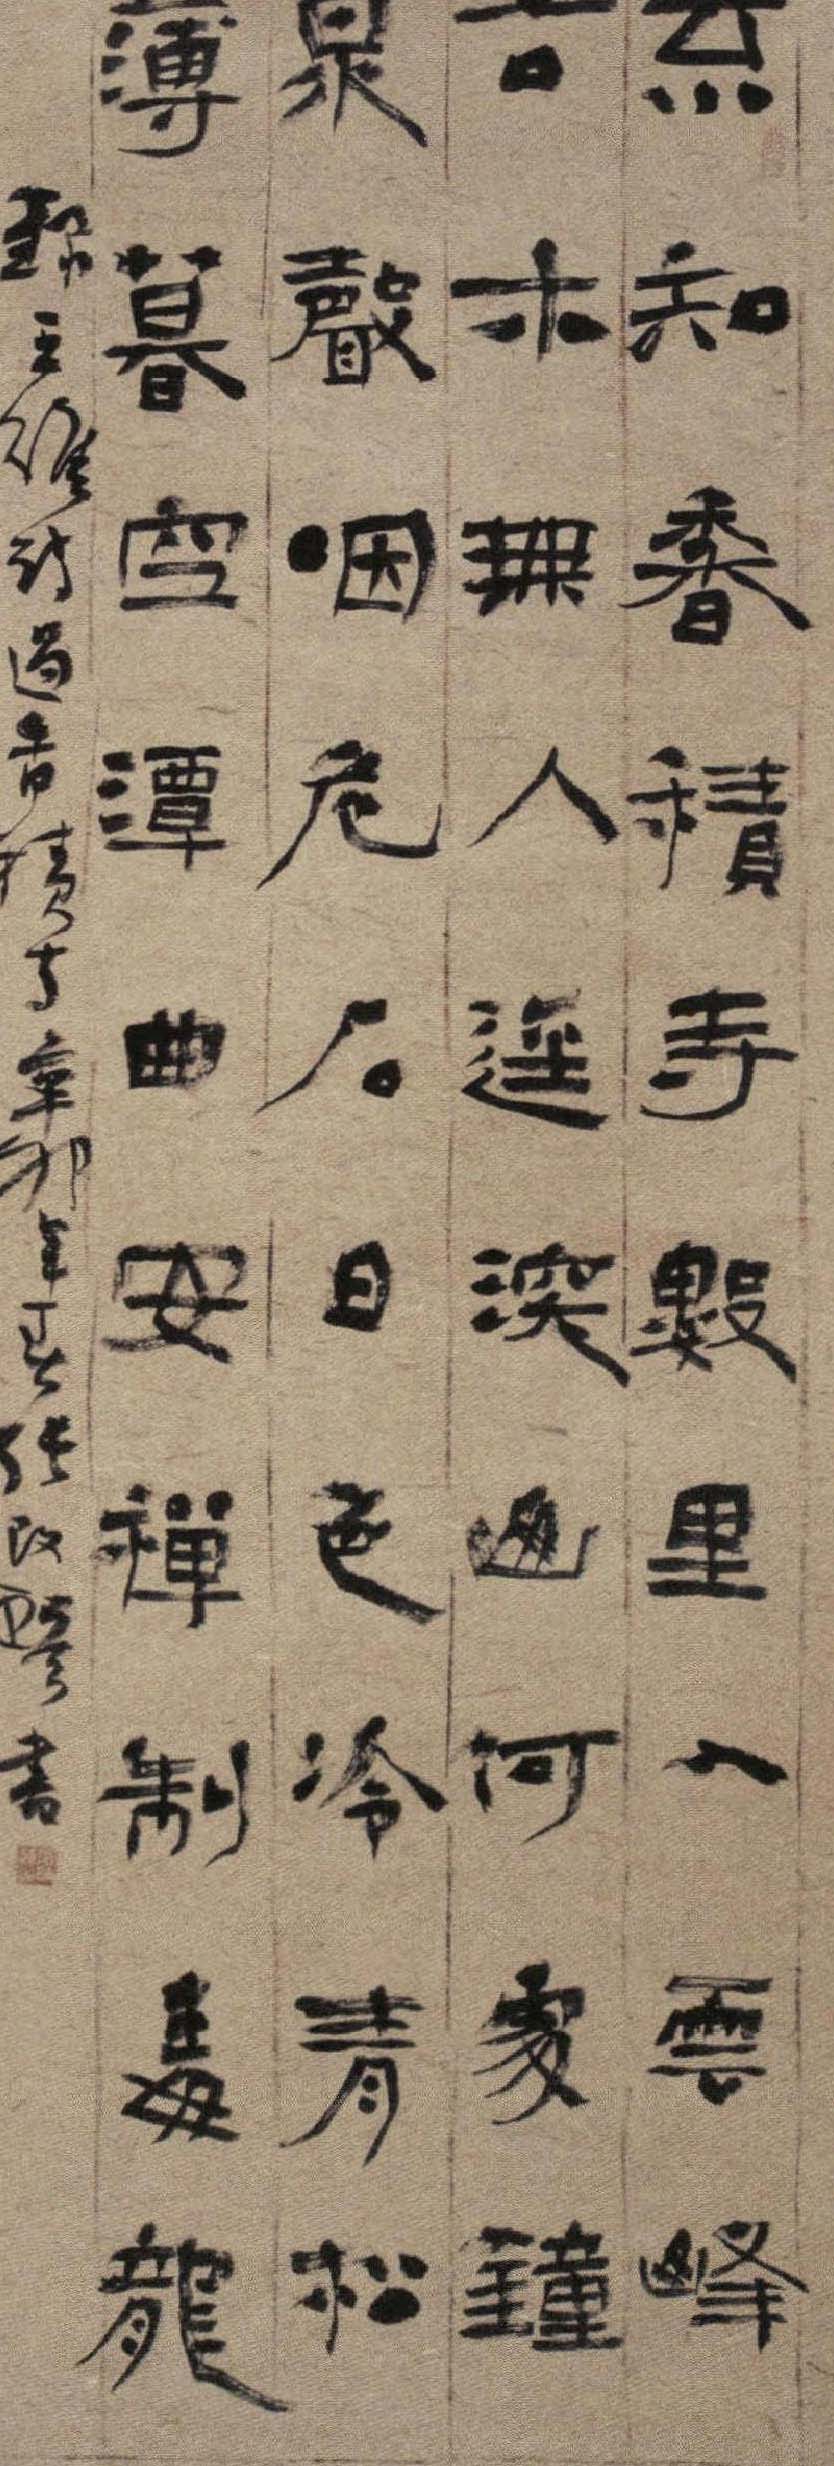 知香積寺數里入雲峰
古木無人逕深山何處鐘
泉聲咽危石日色冷青松
薄暮空潭曲安禪制毒龍
録王維詩過香積寺辛卯年春張改琴書